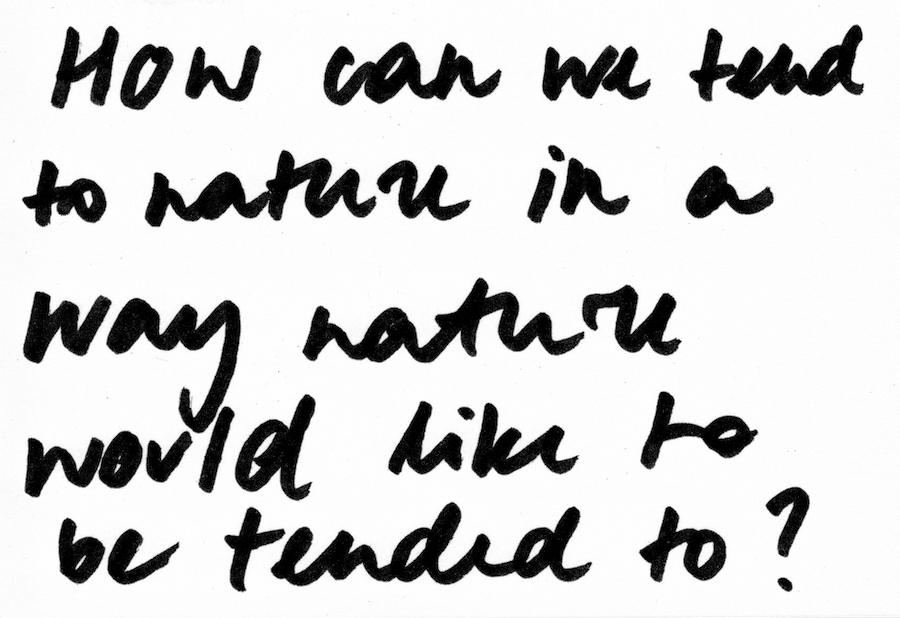 How can we tend
to nature in a
way nature
would like to
be tended to?